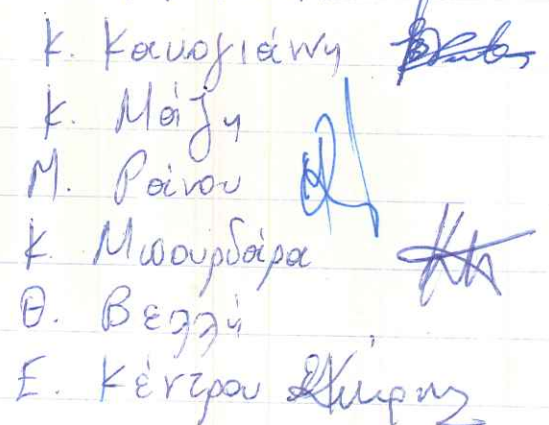 Κ. Κακογιάννη
Κ. Μάζη
Μ. Ράνου
Κ. Μπουρδάρα
Θ. Βελλή
Ε. Κέντρου